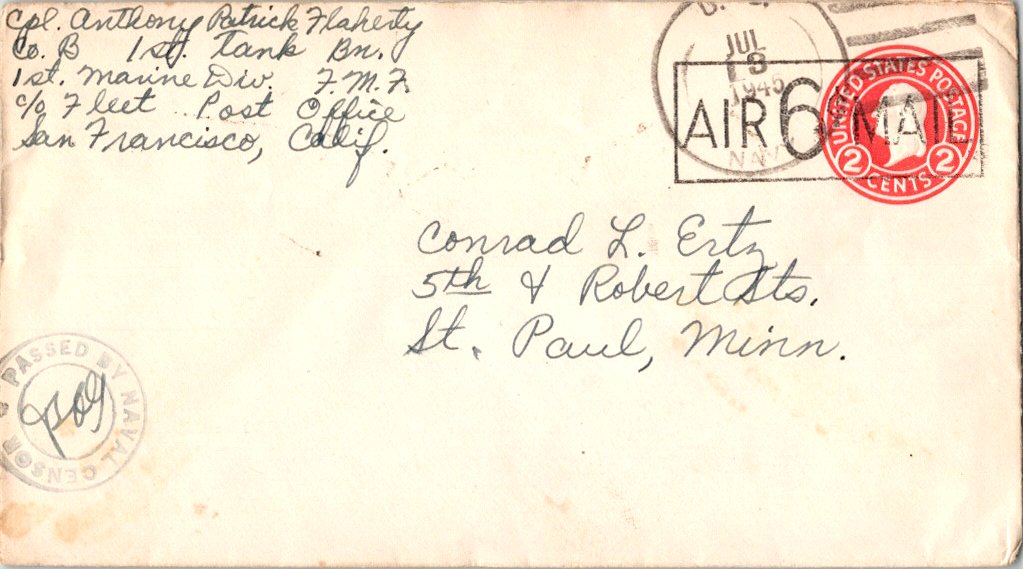 Cpl. Anthony Patrick Flaherty
Co. B 1st. Tank Bn.
1st. Marine Div. F.M.F.
c/o Fleet Post Office
San Francisco, Calif.
JUL
1945
NAVY
AIR 6 MAIL
UNITED STATES POSTAGE
2 CENTS 2
Conrad L. Ertz
5th & Robert Sts.
St. Paul, Minn.
PASSED BY NAVAL CENSOR